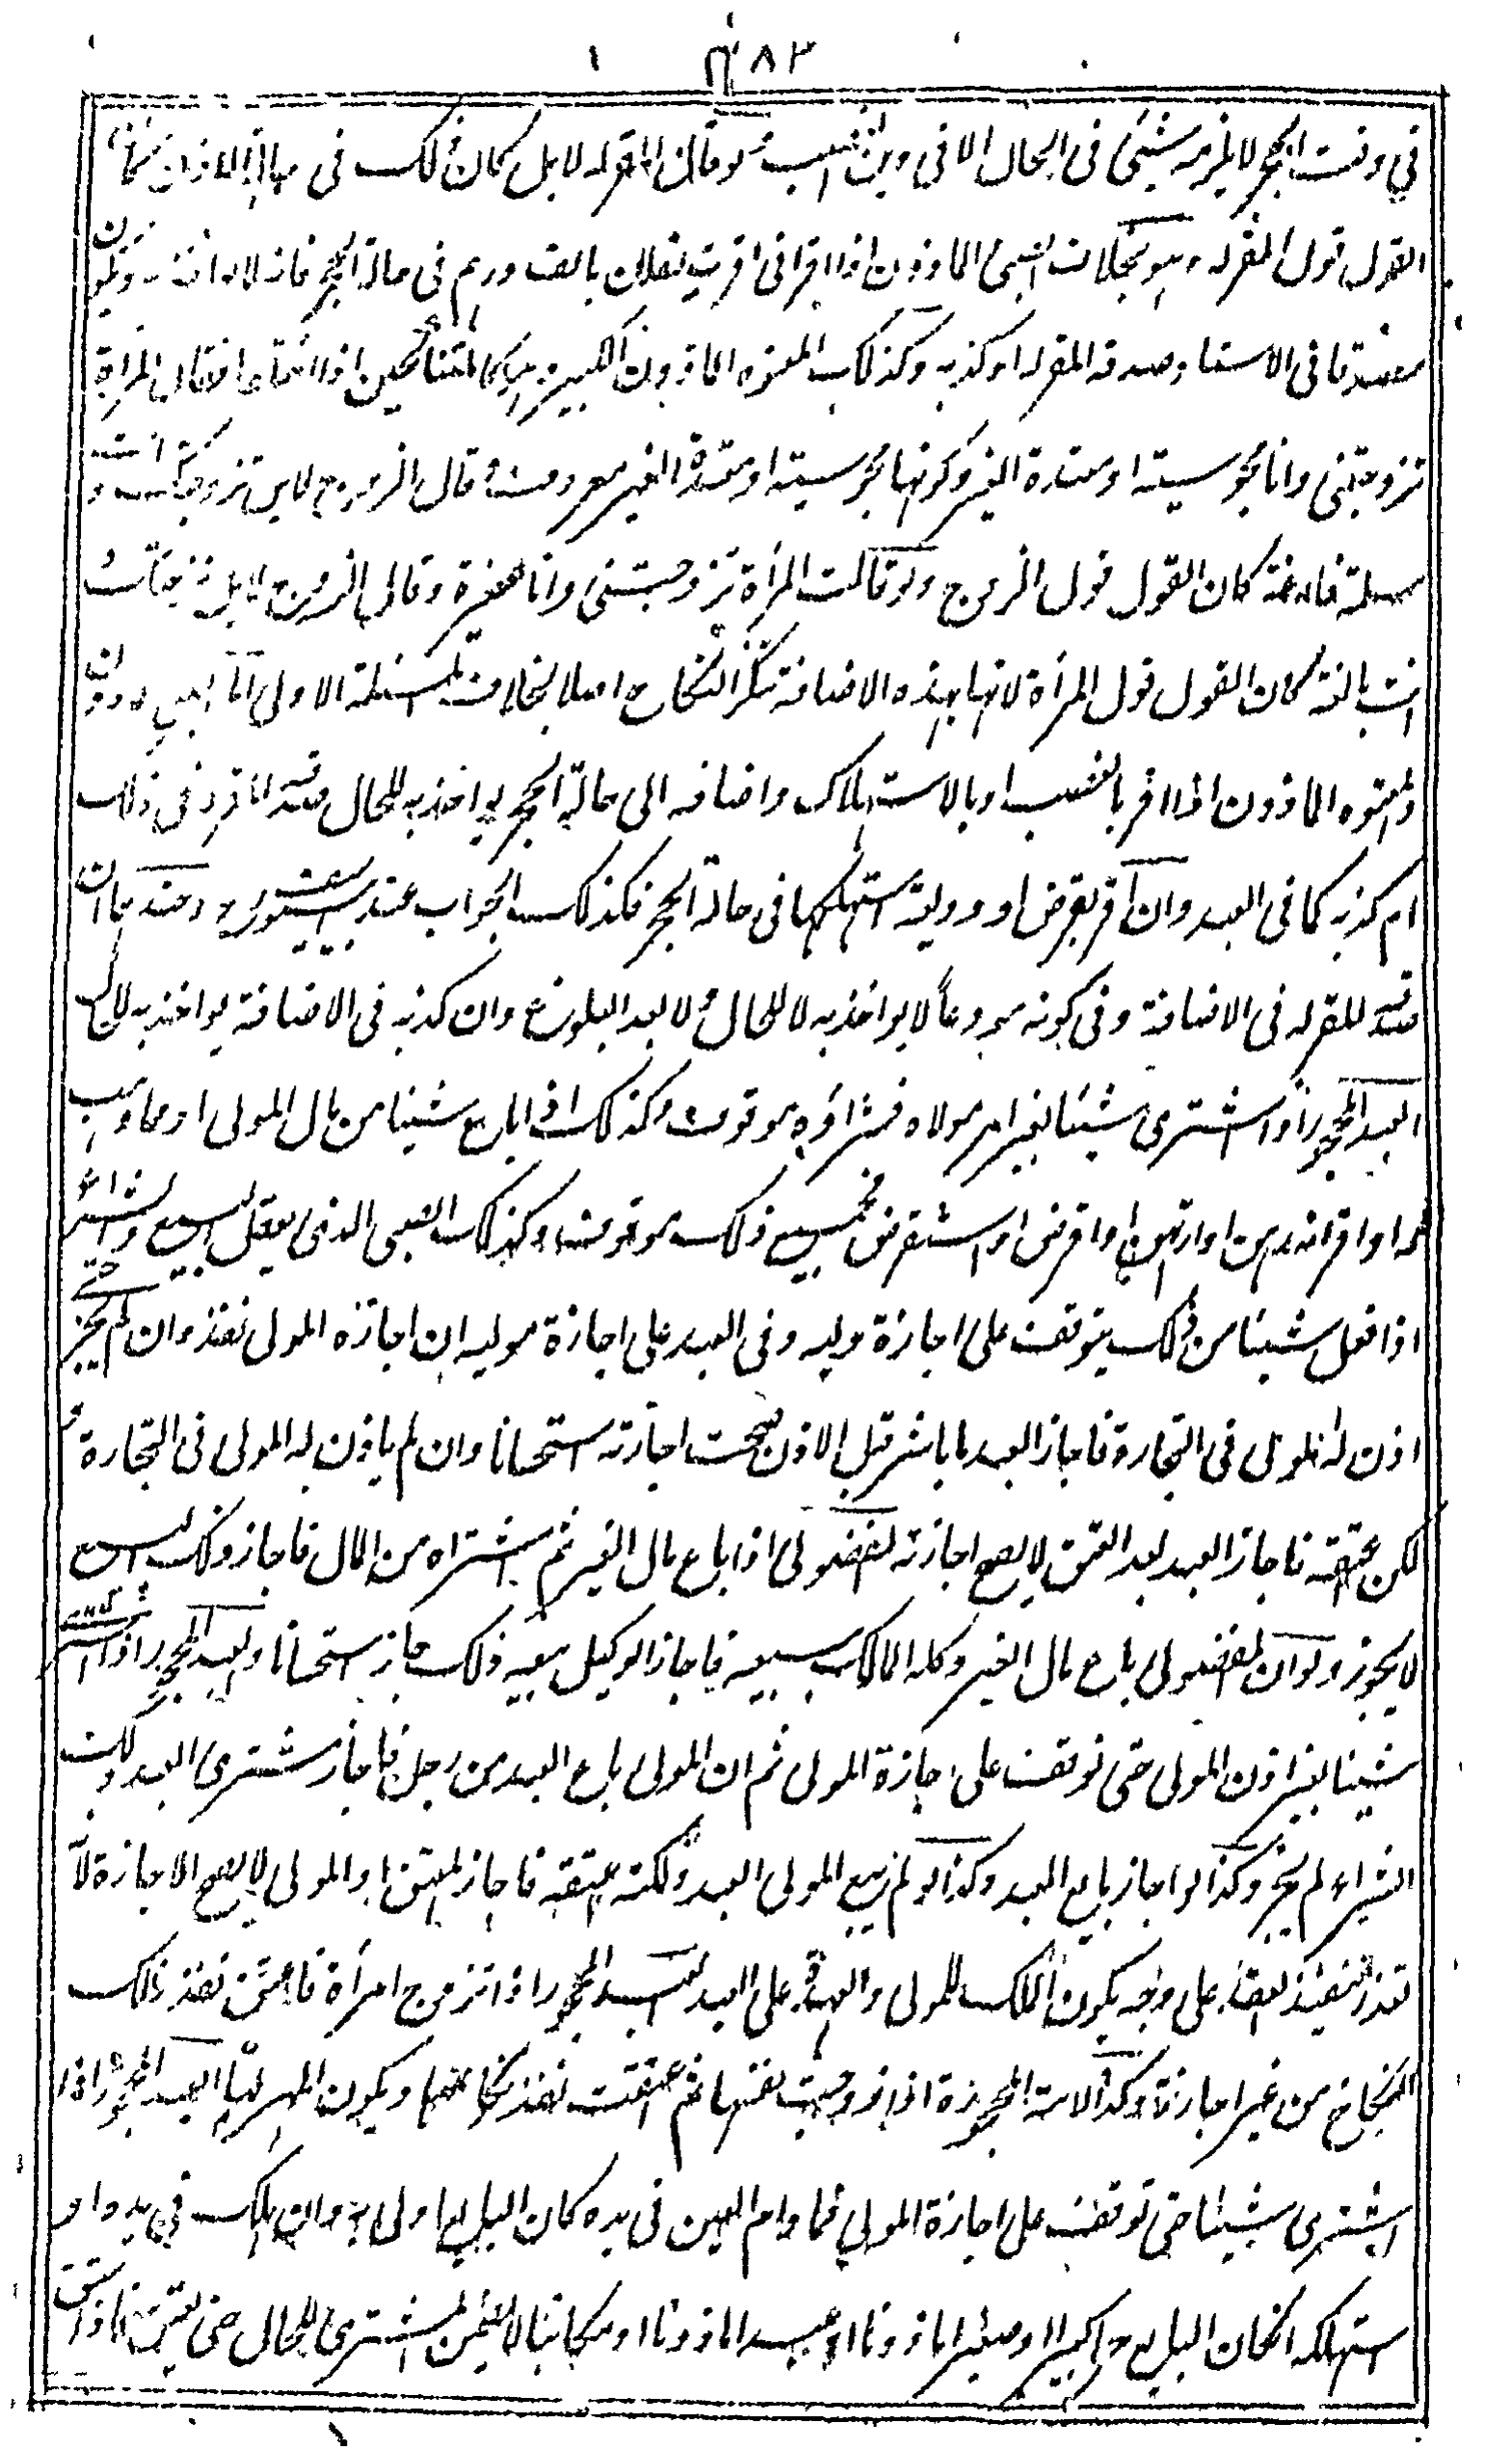 ٣٨٣
في وقت الحجر لا يلزمه شيء في الحال الا في دين الغصب ولو قال المقر له لا بل كان ذلك في حالة الاذن كان
القول قول المقر له وهو بخلاف الصبي الماذون اذا اقر اني اقررت لفلان بالف درهم في حالة الحجر فانه لا يواخذ به ويكون
مصدقا في الاسناد صدقه المقر له او كذبه وكذلك المعتوه الماذون الكبير وهو كالمتناكحين اذا اختلفا فقالت المراة
تزوجتني وانا مجوسية او معتدة الغير وكونها مجوسية او معتدة الغير معروف قال الزوج لا بل تزوجتك وانت
مسلمة فارغة كان القول قول الزوج ولو قالت المرأة تزوجتني وانا صغيرة وقال الزوج لا بل تزوجتك و
انت بالغة كان القول قول المرأة لانها بهذه الاضافة تنكر النكاح اصلا بخلاف المسئلة الاولى اما الصبي الماذون
والمعتوه الماذون اذا اقر بالغصب او بالاستهلاك واضافه الى حالة الحجر يواخذ به للحال صدقه المقر له في ذلك
ام كذبه كما في العبد وان اقر بقرض او وديعة استهلكها في حالة الحجر فكذلك الجواب عند ابي يوسف رح وعندهما ان
صدقه المقر له في الاضافة وفي كونه مودعاً لا يواخذ به لا للحال ولا بعد البلوغ وان كذبه في الاضافة يواخذ به للحال
العبد المحجور اذا اشترى شيئا بغير امر مولاه فشراؤه موقوف وكذلك اذا باع شيئا من مال المولى او مما وهب
له او اقر انه رهن او ارتهن او اقرض او استقرض فجميع ذلك موقوف وكذلك الصبي الذي يعقل البيع والشراء
اذا فعل شيئا من ذلك يتوقف على اجازة وليه وفي العبد على اجازة موليه ان اجازه المولى نفذ وان لم يجز حتى
اذن له المولى في التجارة فاجاز العبد ما باشر قبل الاذن صحت اجازته استحسانا وان لم ياذن له المولى في التجارة و
لكن عتقه فاجاز العبد بعد العتق لا يصح اجازته الفضولي اذا باع مال الغير ثم اشتراه من المال فاجاز ذلك البيع
لا يجوز ولو ان الفضولي باع مال الغير وكله المالك ببيعه فاجاز الوكيل بيعه ذلك جاز استحسانا والعبد المحجور اذا اشترى
شيئا بغير اذن المولى حتى توقف على اجازة المولى ثم ان المولى باع العبد من رجل فاجاز مشتري العبد ذلك
الشراء لم يجز وكذا لو اجاز بايع العبد وكذا لو لم يبع المولى العبد ولكنه عتقه فاجاز المعتق او المولى لا يصح الاجازة لان
تعذر تنفيذ العقد على وجه يكون الملك للمولى والعهدة على العبد العبد المحجور اذا تزوج امرأة فاعتق نفذ ذلك
النكاح من غير اجازة وكذا الامة المحجورة اذا زوجت نفسها ثم عتقت نفذ نكاحها ويكون المهر لها العبد المحجور اذا
اشترى شيئا حتى توقف على اجازة المولى فما دام العين في يده كان البايع اولى به وان هلك في يده او
استهلكه ان كان البايع حرا كبيرا او صغيرا ماذونا او عبدا ماذونا او مكاتبا لا يضمن المشتري للحال حتى يعتق فاذا عتق